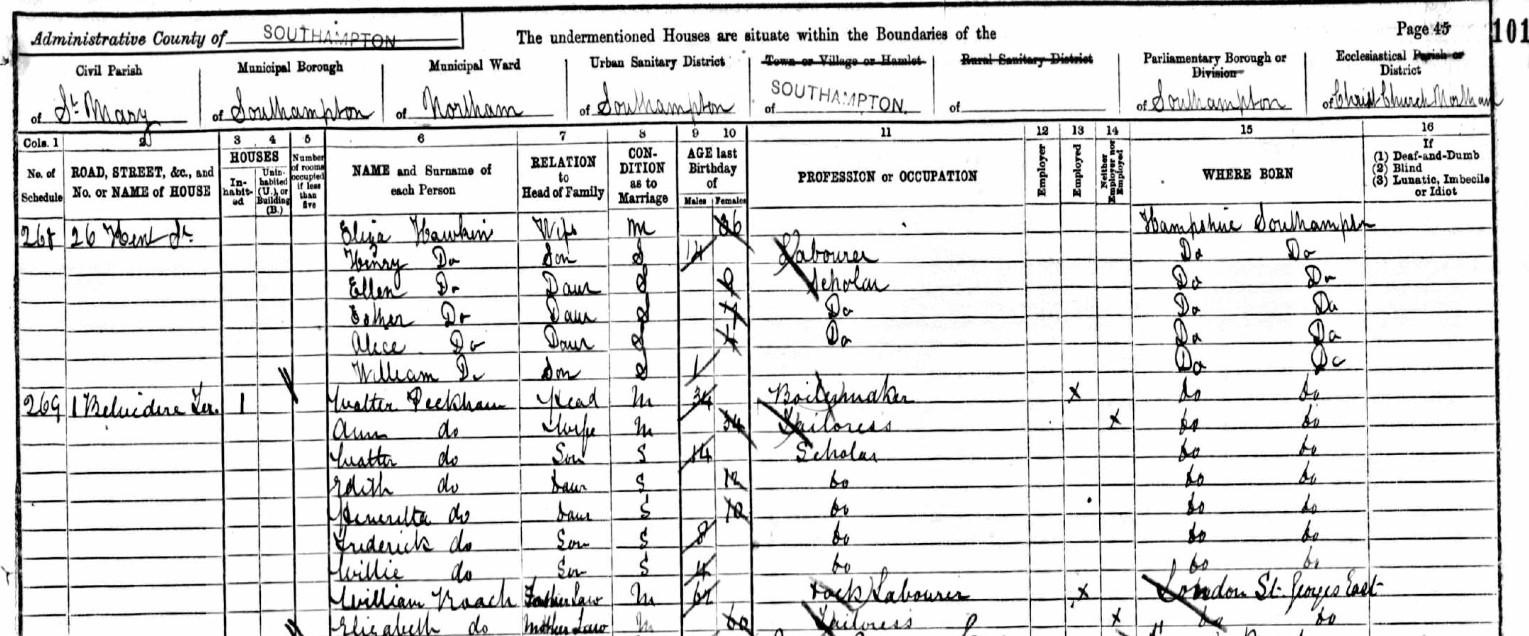 Administrative County of SOUTHAMPTON The undermentioned Houses are situate within the Boundaries of the Page 45 101
Civil Parish Municipal Borough Municipal Ward Urban Sanitary District Town or Village or Hamlet Rural Sanitary District Parliamentary Borough or Division Ecclesiastical Parish or District
of St. Mary of Southampton of Northam of Southampton of SOUTHAMPTON. of of Southampton of Christ Church Northam
Cols. 1 2 3 4 5 6 7 8 9 10 11 12 13 14 15 16
No. of Schedule ROAD, STREET, &c., and No. or NAME of HOUSE HOUSES In-habit-ed Unin-habited (U.), or Building (B.) Number of rooms occupied if less than five NAME and Surname of each Person RELATION to Head of Family CON-DITION as to Marriage AGE last Birthday of Males Females PROFESSION or OCCUPATION Employer Employed Neither Employer nor Employed WHERE BORN If (1) Deaf-and-Dumb (2) Blind (3) Lunatic, Imbecile or Idiot
268 26 Kent St. Eliza Hawkin Wife M 36 Hampshire Southampton
Henry Do Son S 14 Labourer Do Do
Ellen Do Daur S Scholar Do Do
Esther Do Daur S Do Do Do
Alice Do Daur S Do Do Do
William Do Son S 1 Do Do
269 1 Belvidere Ter. 1 Walter Peckham Head M 34 Boilermaker x do do
Ann do Wife M 34 Tailoress x do do
Walter do Son S 14 Scholar do do
Edith do Daur S 12 do do do
Heneretta do Daur S 10 do do do
Frederick do Son S 8 do do do
Willie do Son S 4 do do do
William Roach Father Law M 67 Dock Labourer x London St. Georges East
Elizabeth do Mother Law M 60 Tailoress x do do